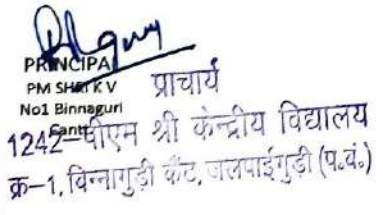 PRINCIPAL
PM SHRI K V
No1 Binnaguri
Cantt
प्राचार्य
1242-पीएम श्री केन्द्रीय विद्यालय
क्र-1, विन्नागुड़ी कैंट, जलपाईगुड़ी (प.बं.)